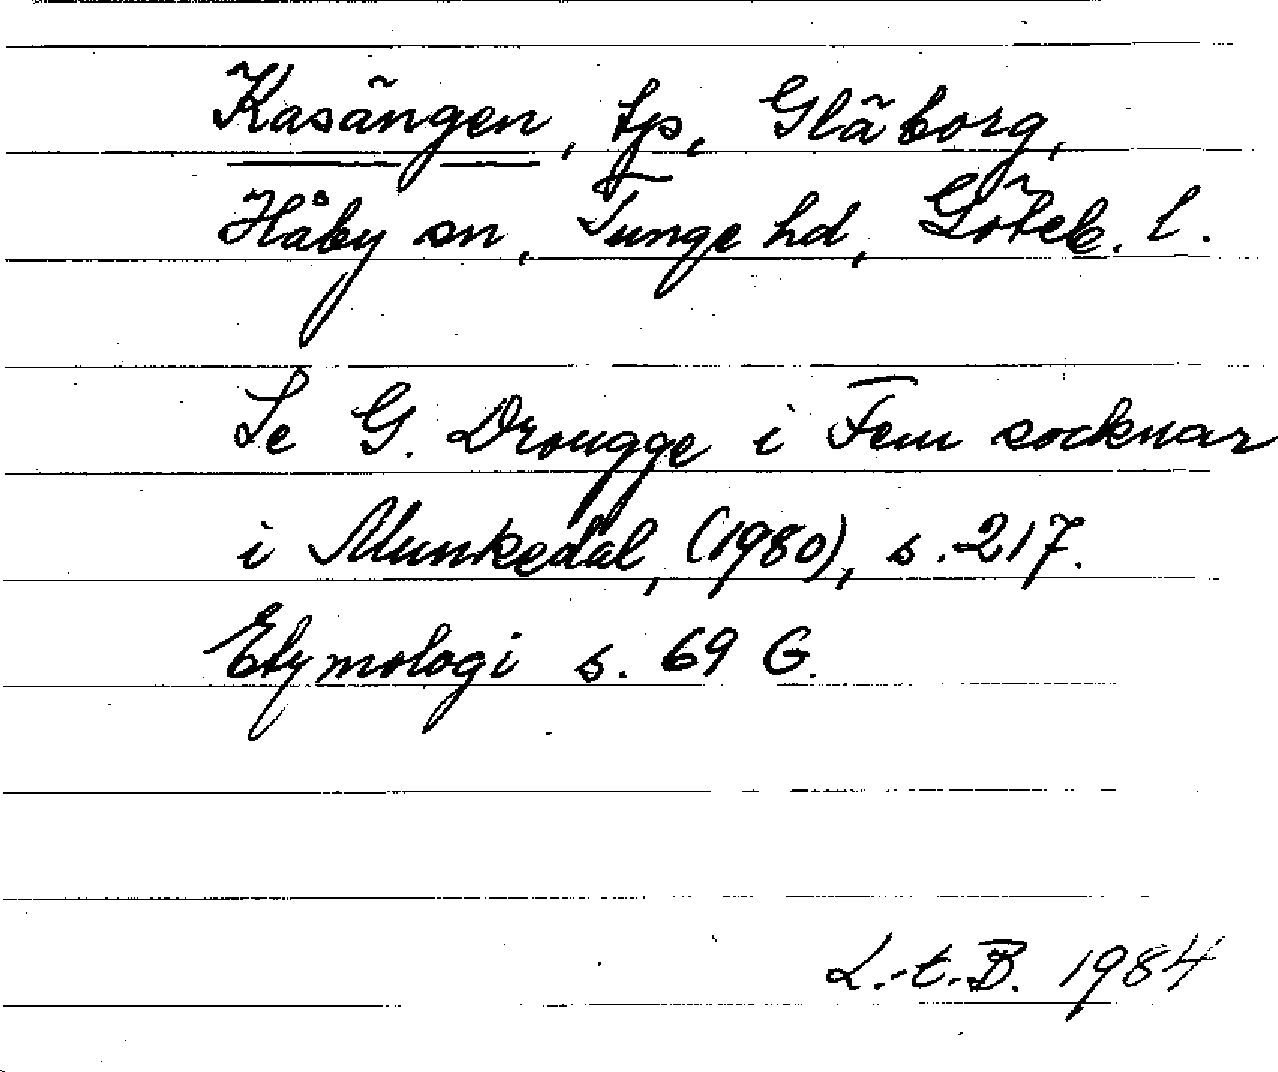 Kasängen, tp, Gläborg,
Håby sn, Tunge hd, Göteb. l.
Se G. Drougge i Fem socknar
i Munkedal, (1980), s. 217.
Etymologi s. 69 G.
L.-t. B. 1984